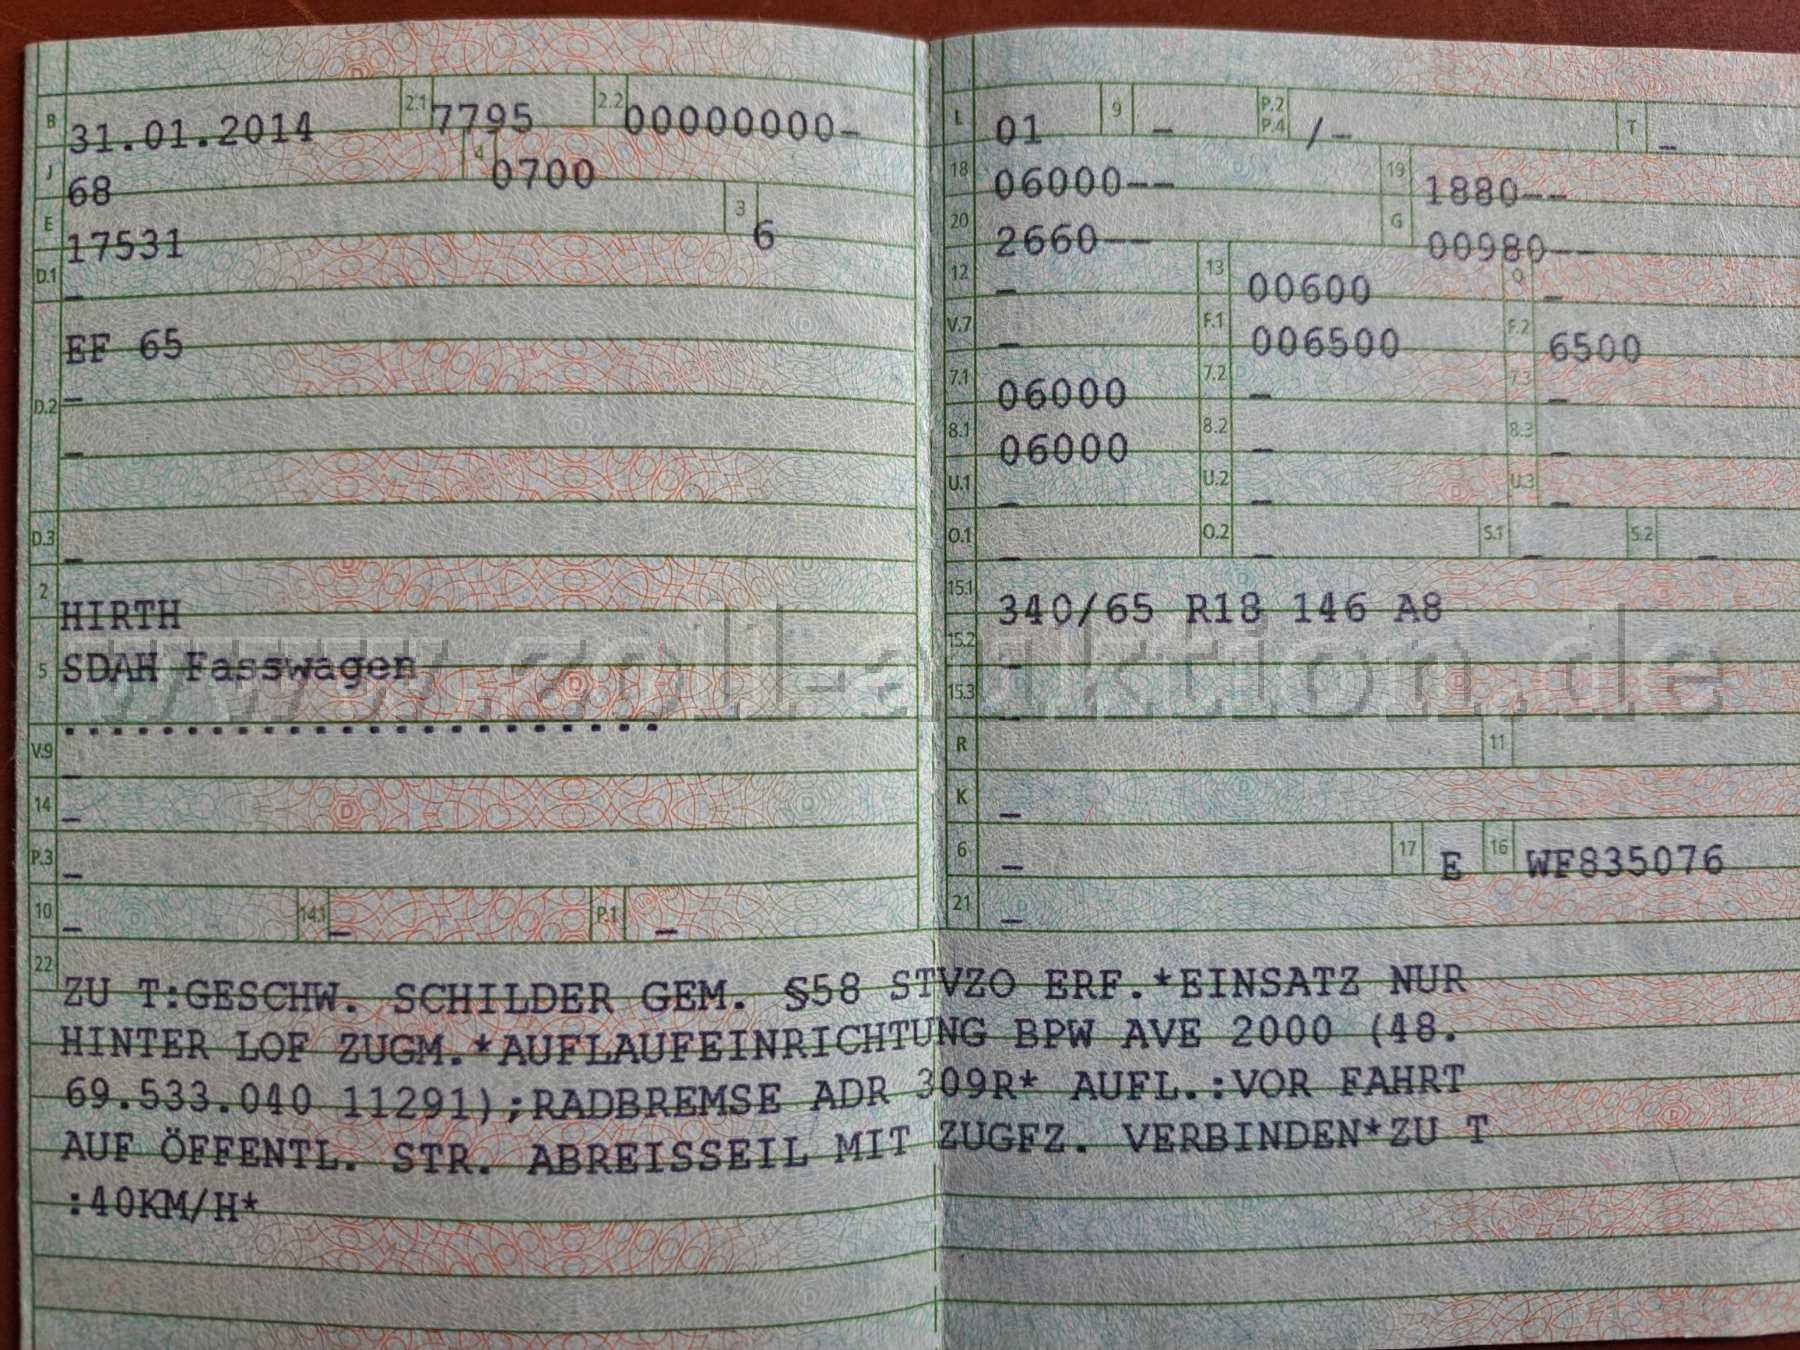 B 31.01.2014 2.1 7795 2.2 00000000-
J 68 4 0700
E 17531 3 6
D.1 -
EF 65
D.2 -
-
D.3 -
2 HIRTH
5 SDAH Fasswagen
......................
V.9 -
14 -
P.3 -
10 - 14.1 - P.1 -
L 01 9 - P.2 P.4 /- T -
18 06000-- 19 1880--
20 2660-- G 00980--
12 - 13 00600 Q -
V.7 - F.1 006500 F.2 6500
7.1 06000 7.2 - 7.3 -
8.1 06000 8.2 - 8.3 -
U.1 - U.2 - U.3 -
O.1 - O.2 - S.1 - S.2 -
15.1 340/65 R18 146 A8
15.2 -
15.3 -
R 11
K -
6 - 17 E 16 WF835076
21 -
22 ZU T:GESCHW. SCHILDER GEM. §58 STVZO ERF.*EINSATZ NUR
HINTER LOF ZUGM.*AUFLAUFEINRICHTUNG BPW AVE 2000 (48.
69.533.040 11291);RADBREMSE ADR 309R* AUFL.:VOR FAHRT
AUF ÖFFENTL. STR. ABREISSEIL MIT ZUGFZ. VERBINDEN*ZU T
:40KM/H*
www.zoll-auktion.de